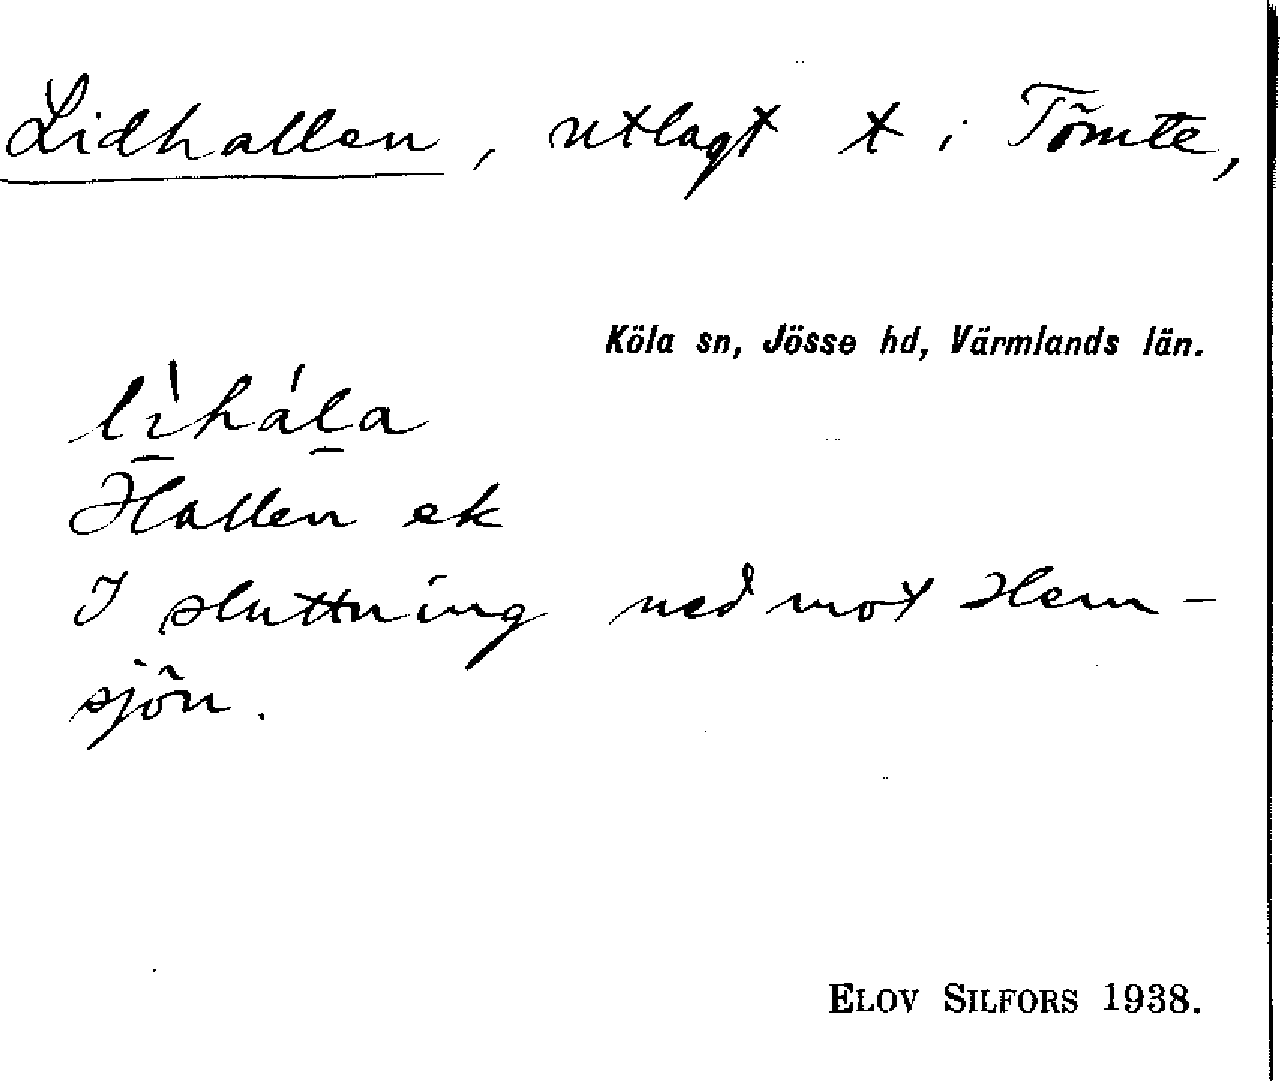 Lidhallen, utlagt t i Tömte,
Köla sn, Jösse hd, Värmlands län.
lìhála
Hallen ek
I sluttning ned mot Hem-
sjön.
ELOV SILFORS 1938.